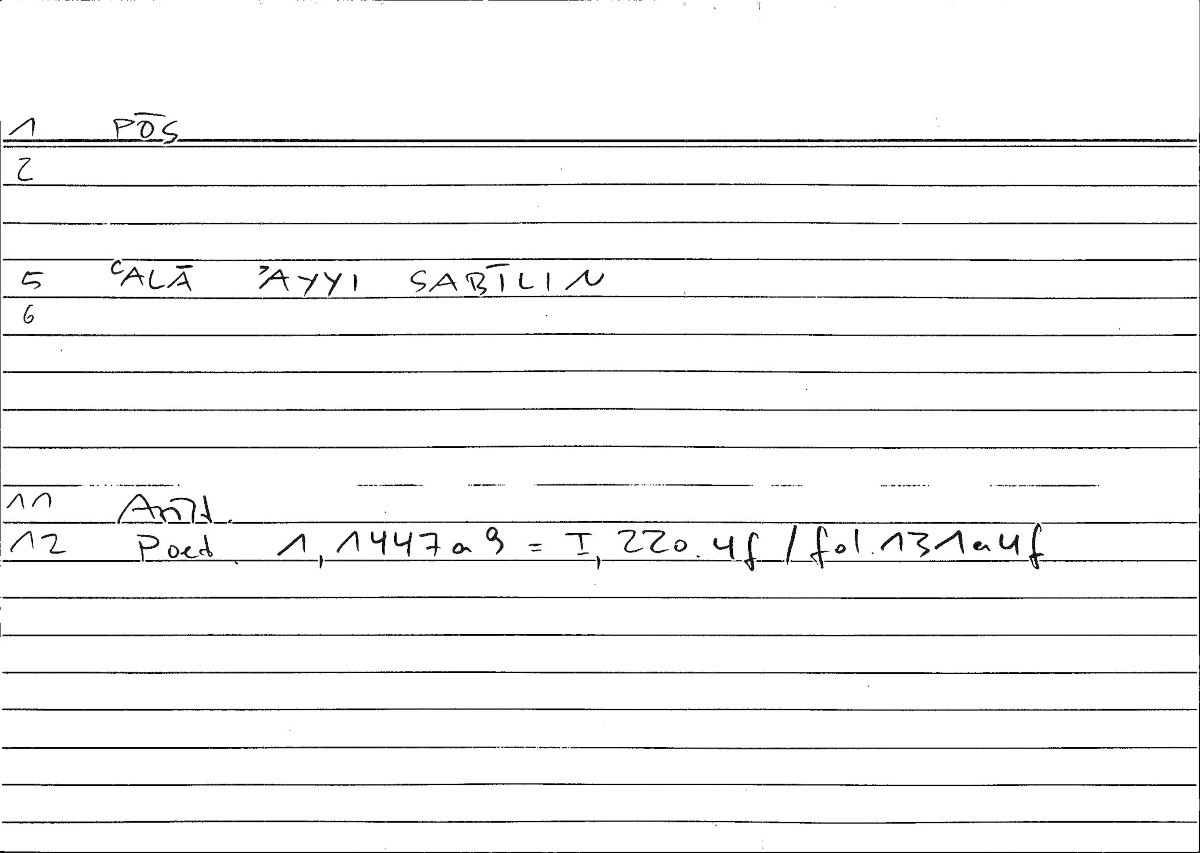 1 PŌS
2
5 ʿALĀ ʾAYYI SABĪLIN
6
11 Arist.
12 Poet. 1,1447a9 = I,220.4f/fol.131a4f